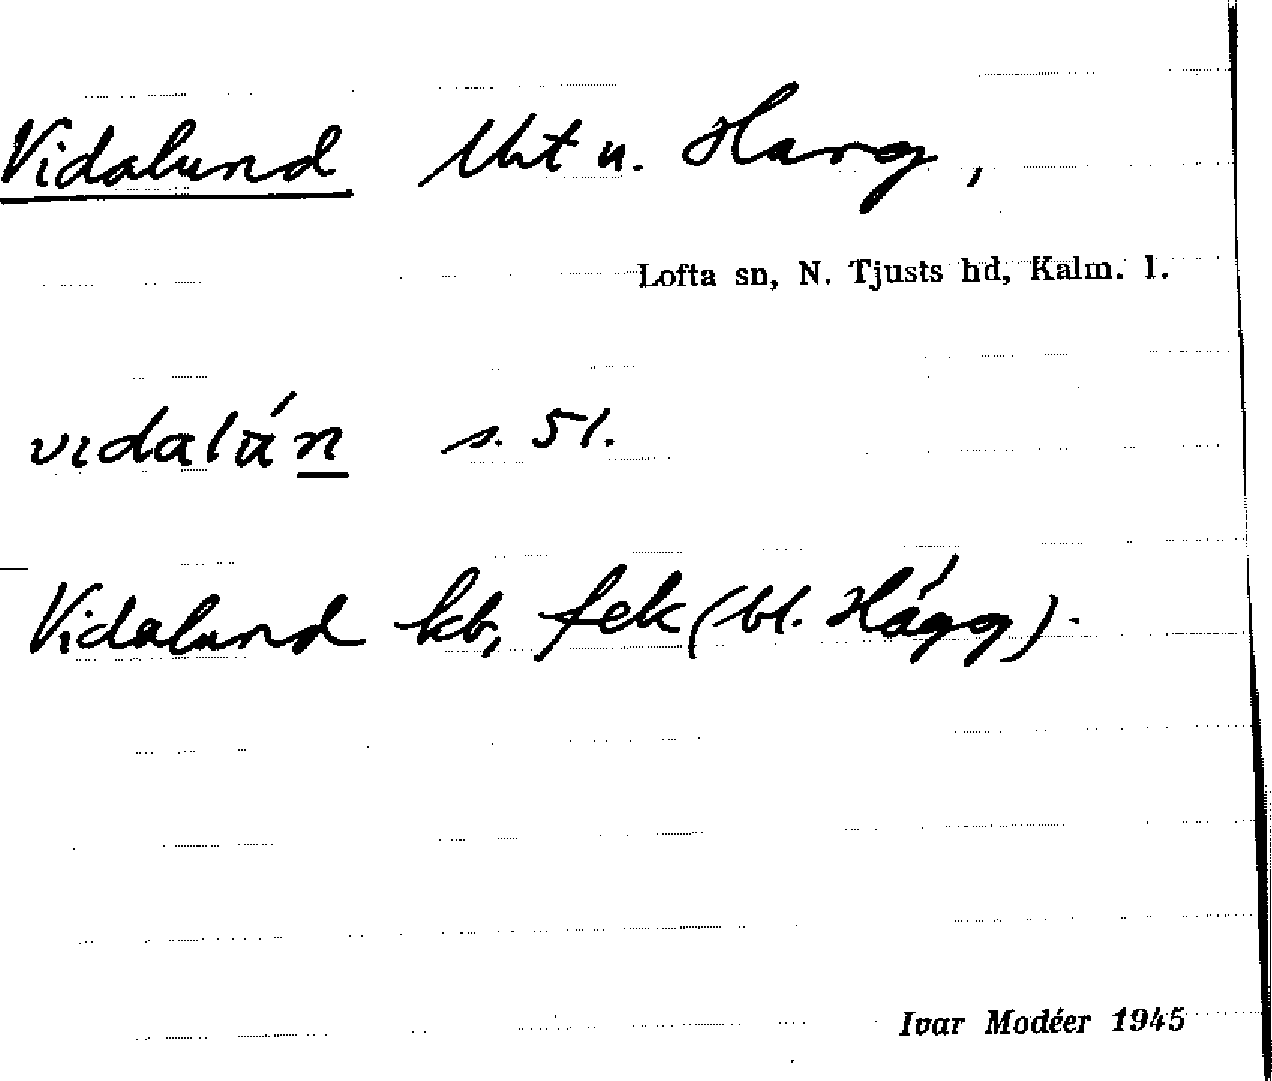 Vidalund lht u. Harg,
Lofta sn, N. Tjusts hd, Kalm. l.
vıdalún s. 51.
Vidalund kb, fek (bl. Hägg).
Ivar Modéer 1945